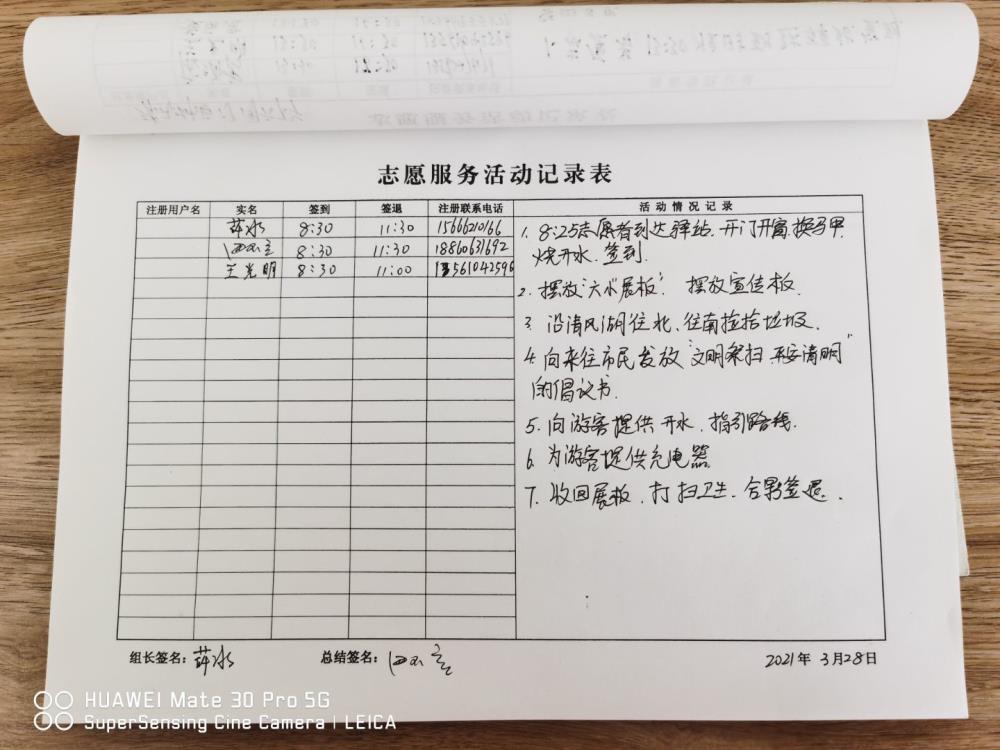 志愿服务活动记录表
注册用户名 实名 签到 签退 注册联系电话 活动情况记录
萍水 8:30 11:30 1566621066
8:30 11:30 18860631692
王光明 8:30 11:00 13561042596
1. 8:25志愿者到达驿站.开门开窗.换马甲.
烧开水.签到.
2. 摆放"大水"展板. 摆放宣传板.
3. 沿清风湖往北、往南捡拾垃圾.
4. 向来往市民发放"文明祭扫.平安清明"
的倡议书.
5. 向游客提供开水.指引路线.
6. 为游客提供充电器
7. 收回展板.打扫卫生.合影签退.
组长签名: 萍水 总结签名: 2021年 3月28日
HUAWEI Mate 30 Pro 5G
SuperSensing Cine Camera | LEICA